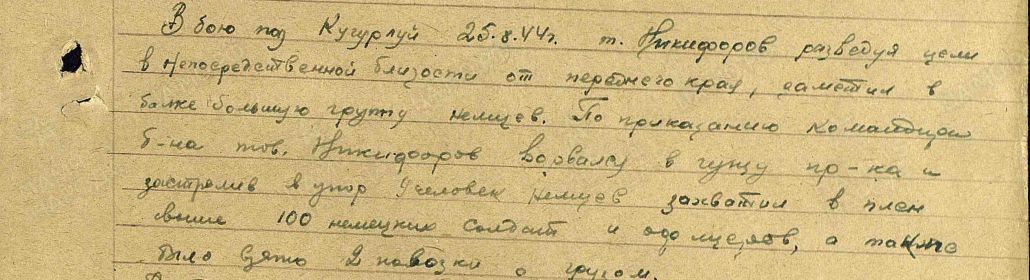 В бою под Кугурлуй 25.8.44г. т. Никифоров разведуя цели
в непосредственной близости от переднего края, заметил в
балке большую группу немцев. По приказанию командира
б-на тов. Никифоров ворвался в гущу пр-ка и
застрелив в упор 9 человек немцев захватил в плен
свыше 100 немецких солдат и офицеров, а также
было взято 2 повозки с грузом.